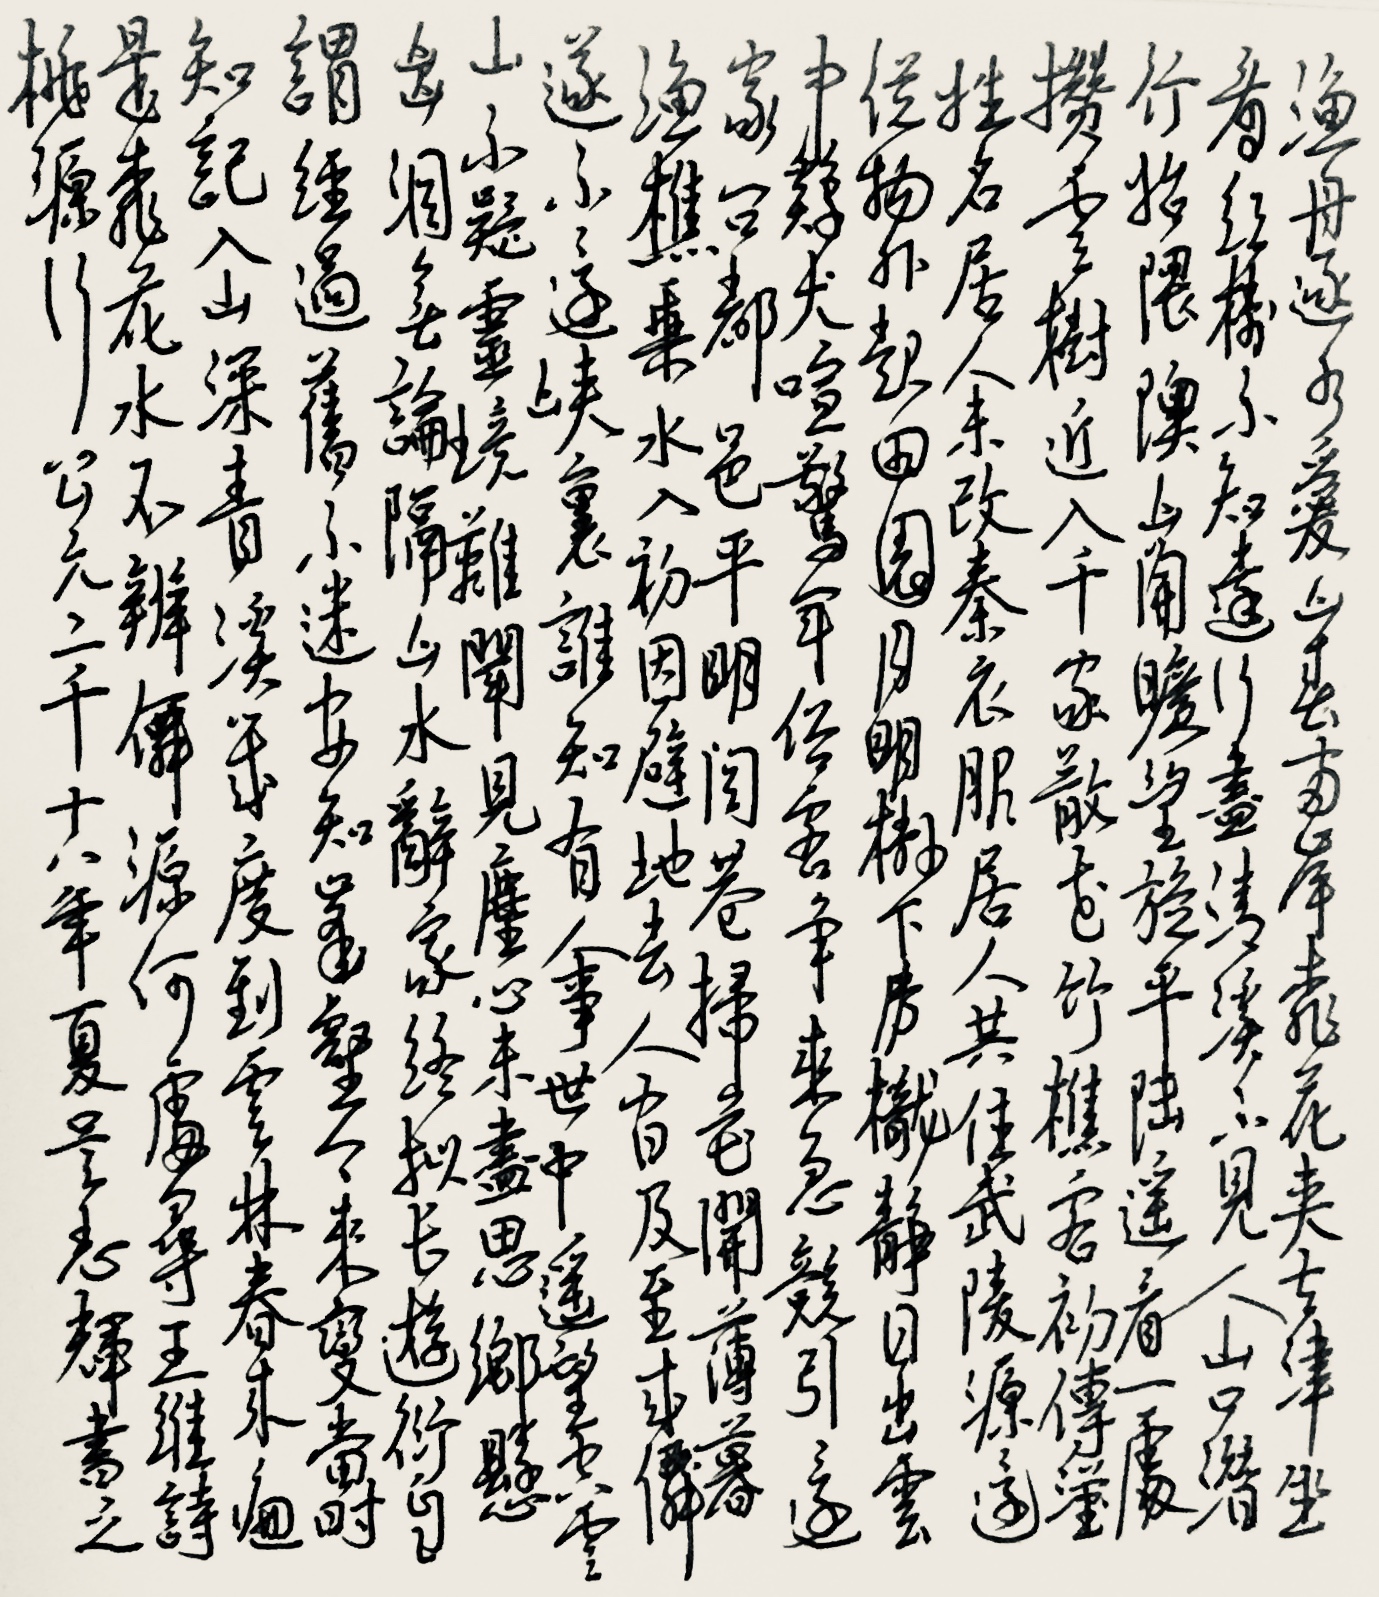 漁舟逐水愛山春兩岸桃花夾去津坐
看紅樹不知遠行盡清溪不見人山口潛
行始隈隩山開曠望旋平陸遙看一處
攢雲樹近入千家散花竹樵客初傳漢
姓名居人未改秦衣服居人共住武陵源還
從物外起田園月明樹下房櫳靜日出雲
中雞犬喧驚聞俗客爭來急競引還
家問都邑平明閭巷掃花開薄暮
漁樵乘水入初因避地去人間及至成僊
遂不還峽裏誰知有人事世中遙望空雲
山不疑靈境難聞見塵心未盡思鄉縣
出洞無論隔山水辭家終擬長遊衍自
謂經過舊不迷安知峯壑今來變當時
知記入山深青溪幾度到雲林春來遍
是桃花水不辨僊源何處尋王維詩
桃源行 公元二千十八年夏吳志輝書之